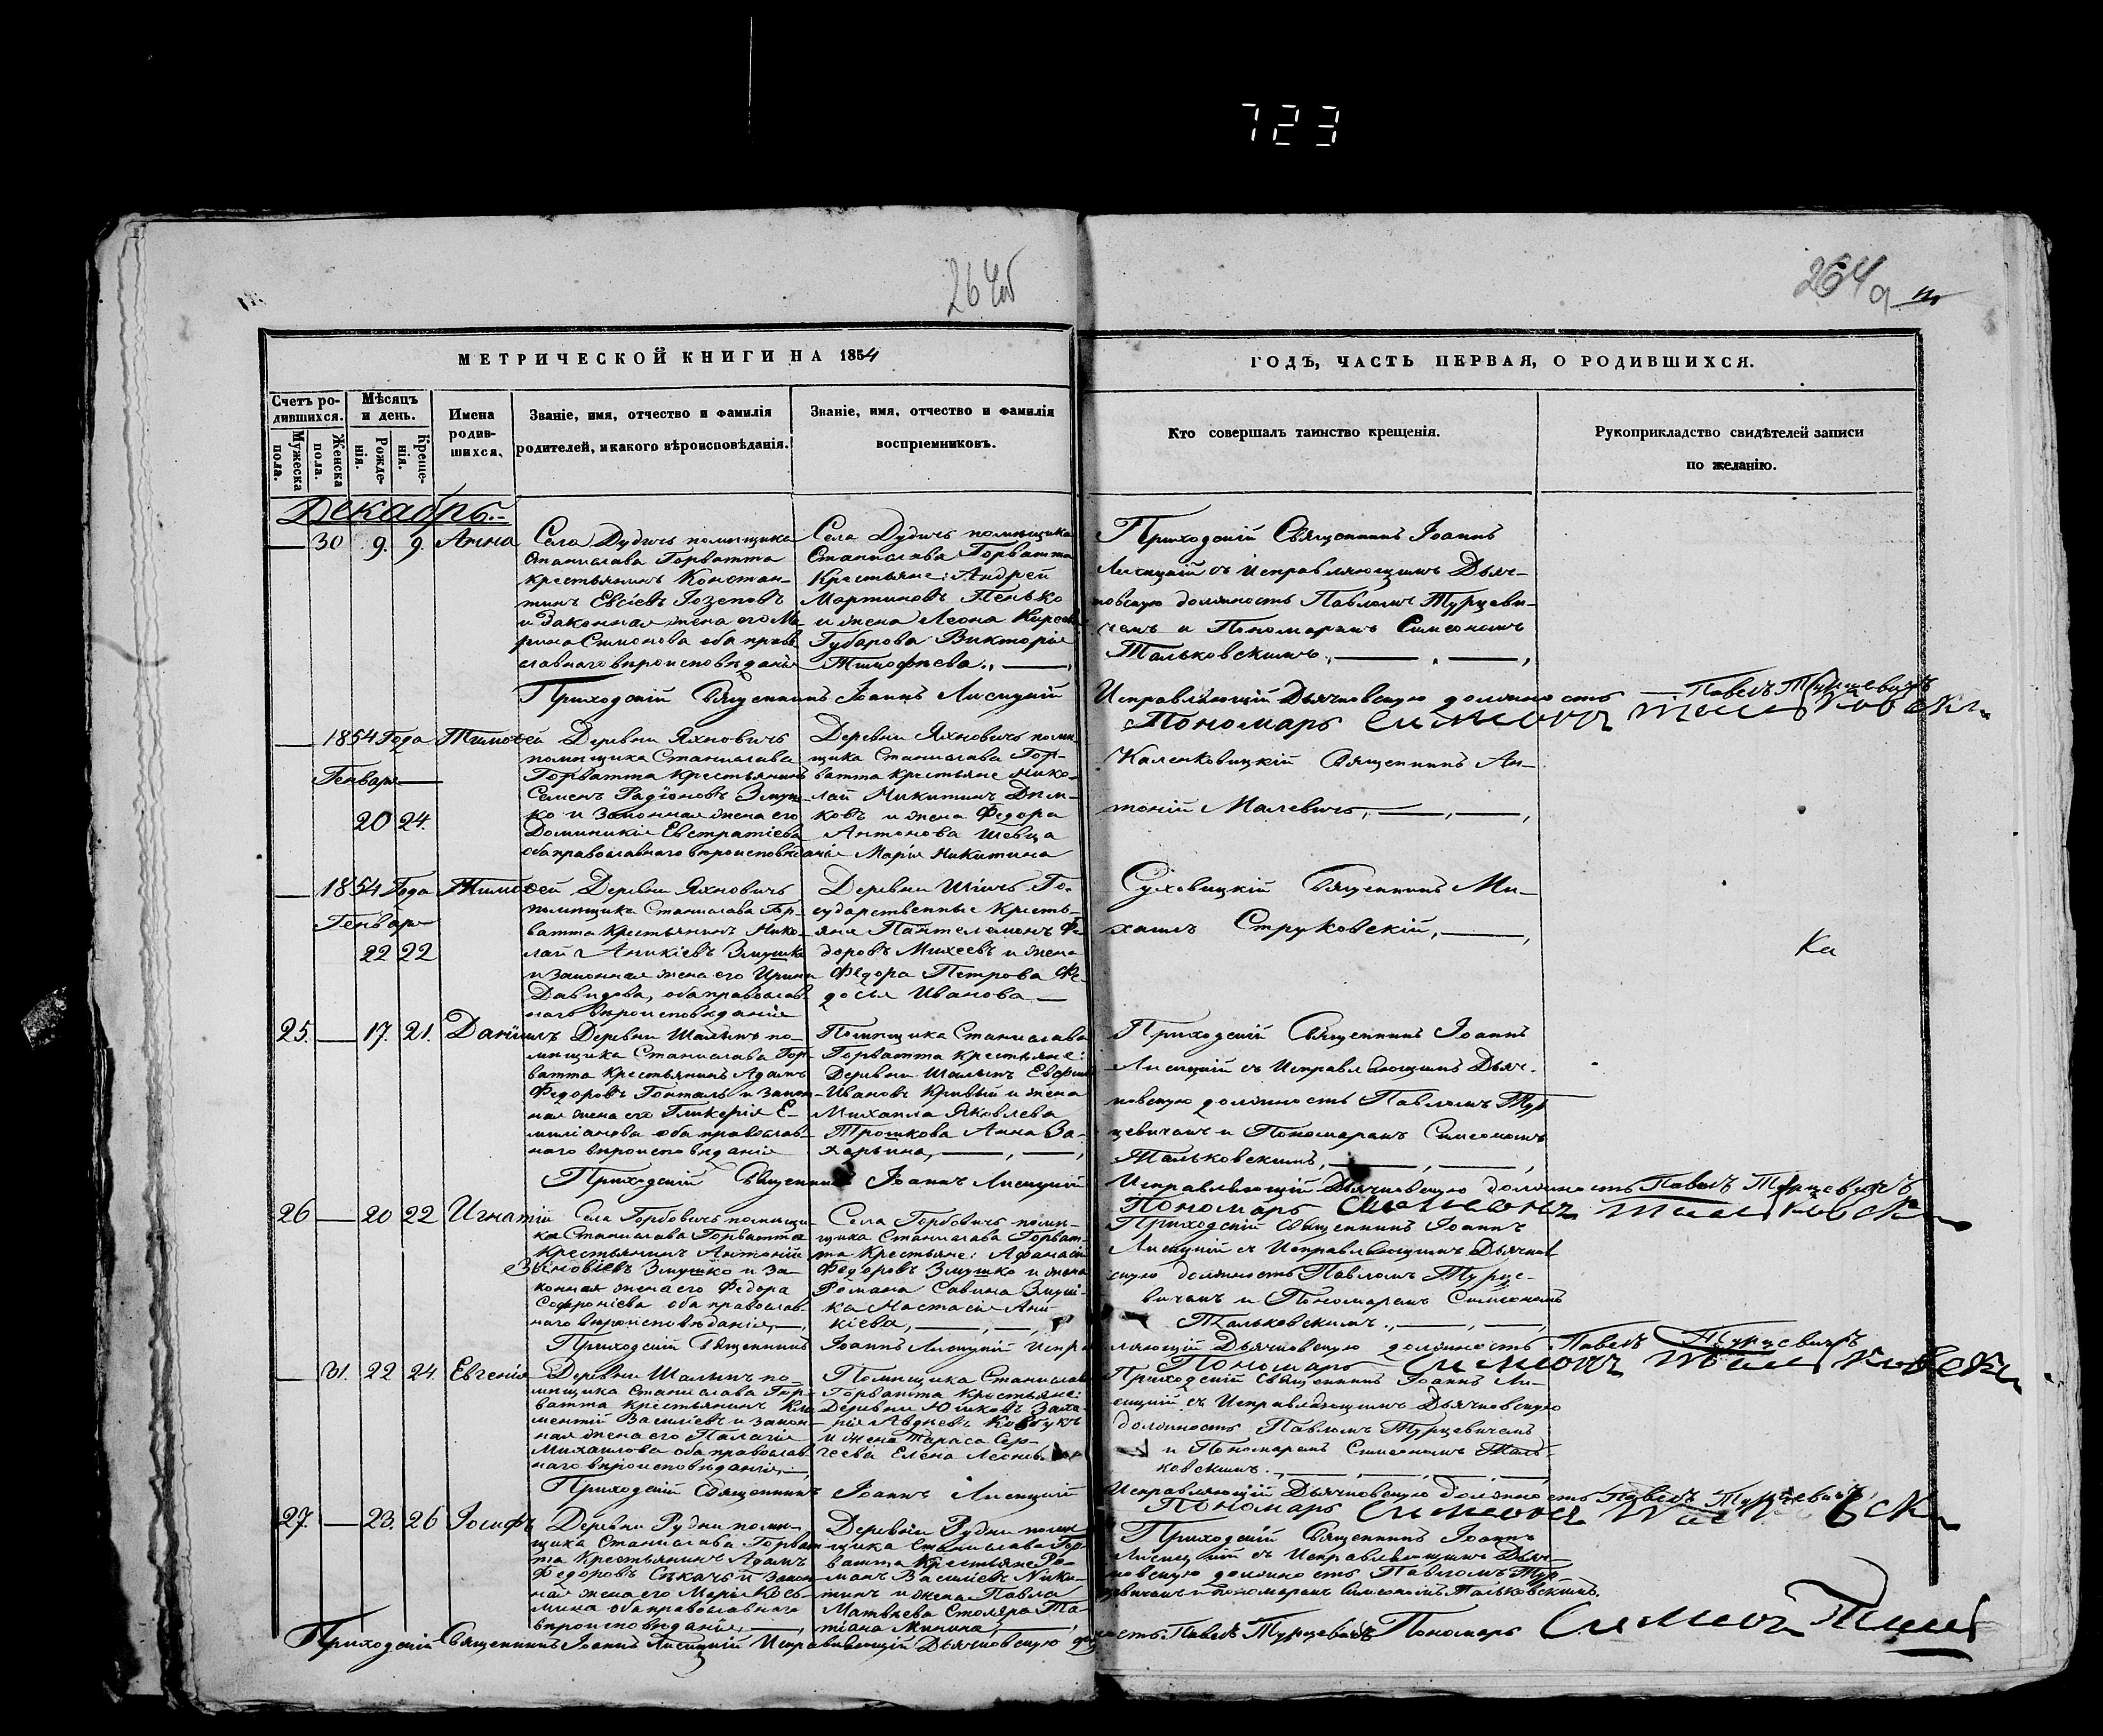 723
264об
264а
МЕТРИЧЕСКОЙ КНИГИ НА 1854
ГОДЪ, ЧАСТЬ ПЕРВАЯ, О РОДИВШИХСЯ.
Счетъ ро-
дившихся.
Мужеска
пола.
Женска
пола.
Мѣсяцъ
и день.
Рожде-
нія.
Креще-
нія.
Имена
родив-
шихся.
Званіе, имя, отчество и фамилія
родителей, и какого вѣроисповѣданія.
Званіе, имя, отчество и фамилія
воспріемниковъ.
Кто совершалъ таинство крещенія.
Рукоприкладство свидѣтелей записи
по желанію.
Декабрь.
30 9. 9. Анна
Села Дудичъ помѣщика
Станислава Горватта
крестьянинъ Констан-
тинъ Евсіевъ
и законная жена его Ма-
рина Симонова оба право-
славнаго вѣроисповѣданія
Села Дудичъ помѣщика
Станислава Горватта
Крестьяне: Андрей
Мартиновъ Пенько
и жена Леона
Губарова Викторія
Тимофѣева.
Приходскій Священникъ Іоаннъ
Лисицкій съ Исправляющимъ Дьяч-
ковскую должность Павломъ Турцеви-
чемъ и Пономаремъ Симеономъ
Тальковскимъ.
Приходскій Священникъ Іоаннъ Лисицкій
Исправляющій Дьячковскую должность Павелъ Турцевичъ
Пономарь Симеонъ Тальковскій
1854 Года Тимоѳей
Генваря
20 24.
Деревни Яхновичъ
помѣщика Станислава
Горватта крестьянинъ
Семенъ Радіоновъ Змуш-
ко и Законная жена его
Доминикія Евстратіева
оба православнаго вѣроисповѣданія
Деревни Яхновичъ помѣ-
щика Станислава Гор-
ватта крестьяне Нико-
лай Никитинъ
и жена Федора
Антонова Шевца
Марія Никитина
Каленковицкій Священникъ Ан-
тоній Малевичъ,
1854 Года Тимоѳей
Генваря
22 22
Деревни Яхновичъ
помѣщика Станислава Гор-
ватта крестьянинъ Нико-
лай Аникіевъ Змушко
и законная жена его Ирина
Давидова, оба православ-
наго вѣроисповѣданія
Деревни Го-
сударственные кресть-
яне Пантелемонъ Фе-
доровъ Михеевъ и жена
Федора Петрова Фе-
досья Иванова
Суховицкій Священникъ Ми-
хаилъ Струковскій,
Ка
25. 17. 21. Даніилъ
Деревни Шалынъ по-
мѣщика Станислава Гор-
ватта крестьянинъ Адамъ
Федоровъ и закон-
ная жена его Гликерія Е-
миліанова оба православ-
наго вѣроисповѣданія
Помѣщика Станислава
Горватта крестьяне:
Деревни Шалынъ
Ивановъ Кривый и жена
Михаила Яковлева
Трошкова Анна За-
харьина,
Приходскій Священникъ Іоаннъ
Лисицкій съ Исправляющимъ Дьяч-
ковскую должность Павломъ Тур-
цевичемъ и Пономаремъ Симеономъ
Тальковскимъ,
Приходскій Священникъ Іоаннъ Лисицкій
Исправляющій Дьячковскую должность Павелъ Турцевичъ
Пономарь Симеонъ Тальковскій
26 20 22 Игнатій
Села Горбовичъ помѣщи-
ка Станислава Горватта
крестьянинъ Антоній
Зѣновіевъ Змушко и за-
конная жена его Федора
Софроніева оба православ-
наго вѣроисповѣданія,
Села Горбовичъ помѣ-
щика Станислава Горват-
та Крестьяне: Афанасій
Федоровъ Змушко и жена
Романа Савина Змуш-
ка Настасія Ани-
кіева,
Приходскій Священникъ Іоаннъ
Лисицкій съ Исправляющимъ Дьячков-
скую должность Павломъ Турце-
вичемъ и Пономаремъ Симеономъ
Тальковскимъ.
Приходскій Священникъ Іоаннъ Лисицкій Исправ-
ляющій Дьячковскую должность Павелъ Турцевичъ
Пономарь Симеонъ Тальковскій
31. 22 24. Евгенія
Деревни Шалынъ по-
мѣщика Станислава Гор-
ватта крестьянинъ Кли-
ментій Василіевъ и закон-
ная жена его Палагія
Михаилова оба православ-
наго вѣроисповѣданія,
Помѣщика Станислава
Горватта крестьяне:
Деревни Юшковъ Заха-
рія Авдѣевъ Ковтунъ
и жена Тараса Сер-
геева Елена Леонова
Приходскій Священникъ Іоаннъ Ли-
сицкій съ Исправляющимъ Дьячковскую
должность Павломъ Турцевичемъ
и Пономаремъ Симеономъ Таль-
ковскимъ.
Приходскій Священникъ Іоаннъ Лисицкій
Исправляющій Дьячковскую должность Павелъ Турцевичъ
Пономарь Симеонъ
27. 23. 26 Іосифъ
Деревни Рудни помѣ-
щика Станислава Горват-
та Крестьянинъ Адамъ
Федоровъ Секачъ и закон-
ная жена его Марія Козь-
мина оба православнаго
вѣроисповѣданія,
Деревни Рудни помѣ-
щика Станислава Гор-
ватта Крестьяне Ро-
манъ Василіевъ Ники-
тинъ и жена Павла
Матвѣева Столяра Та-
тіана Минина,
Приходскій Священникъ Іоаннъ
Лисицкій съ Исправляющимъ Дьяч-
ковскую должность Павломъ Тур-
цевичемъ и Пономаремъ Симеономъ Тальковскимъ.
Приходскій Священникъ Іоаннъ Лисицкій Исправляющій Дьячковскую должность Павелъ Турцевичъ Пономарь Симеонъ